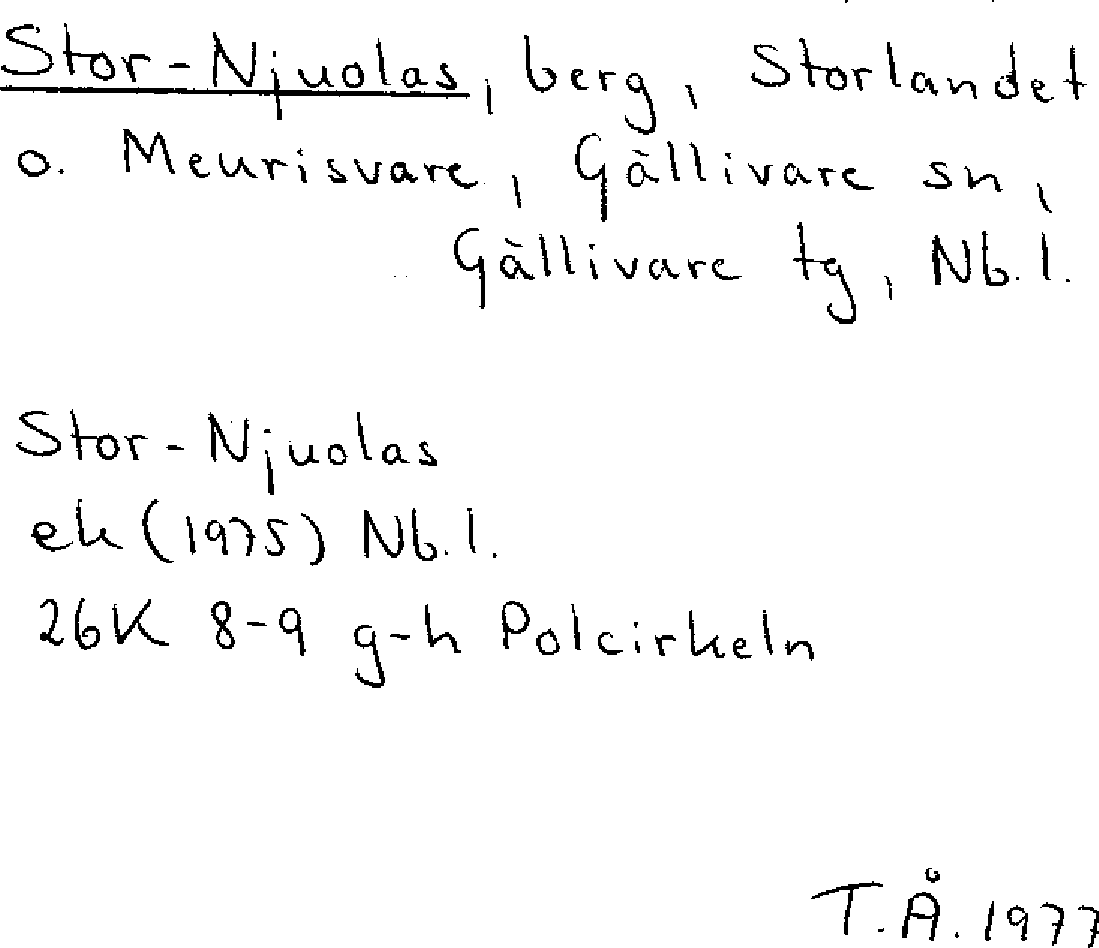 Stor-Njuolas, berg, Storlandet
o. Meurisvare, Gällivare sn,
Gällivare tg, Nb.l.
Stor-Njuolas
ek (1975) Nb.l.
26K 8-9 g-h Polcirkeln
T.Å. 1977